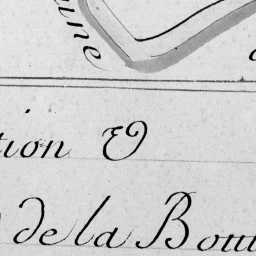 ine
tion &
de la Bout